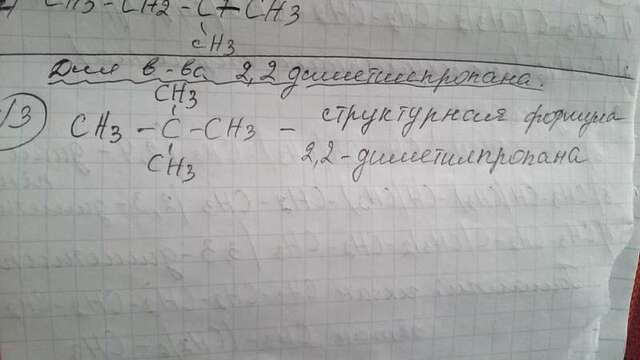 CH3-CH2-C+CH3
CH3
Для в-ва 2,2 диметилпропана.
CH3
13
CH3-C-CH3 - структурная формула
CH3
2,2-диметилпропана